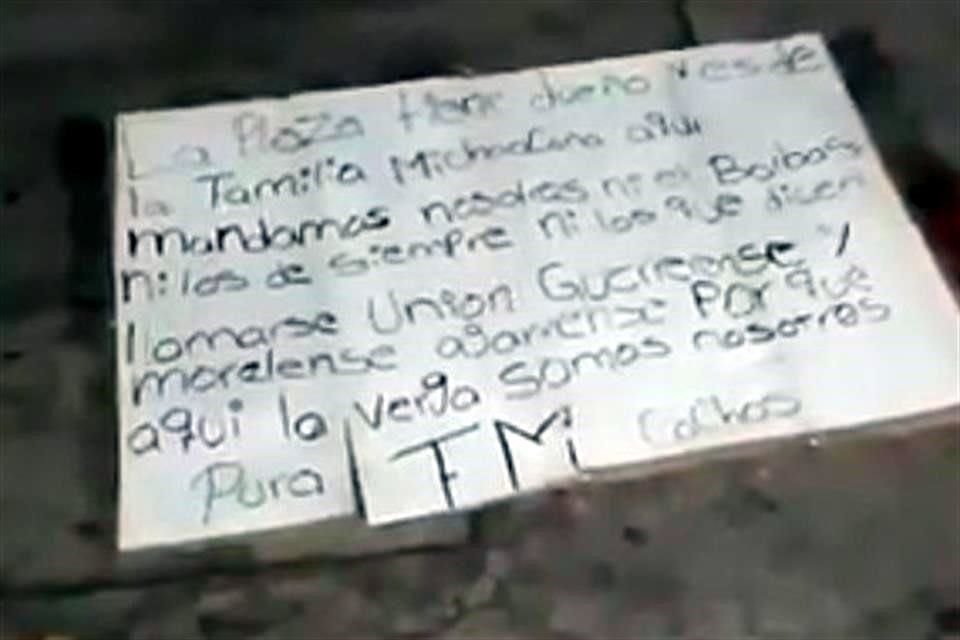 La Plaza tiene dueño Y es de
la Familia Michoacana aqui
mandamos nosotros ni el Boibas
ni los de siempre ni los que dicen
llamarse Union Guerrerense y
morelense agarrense Por que
aqui la verga somos nosotros
Pura LFM